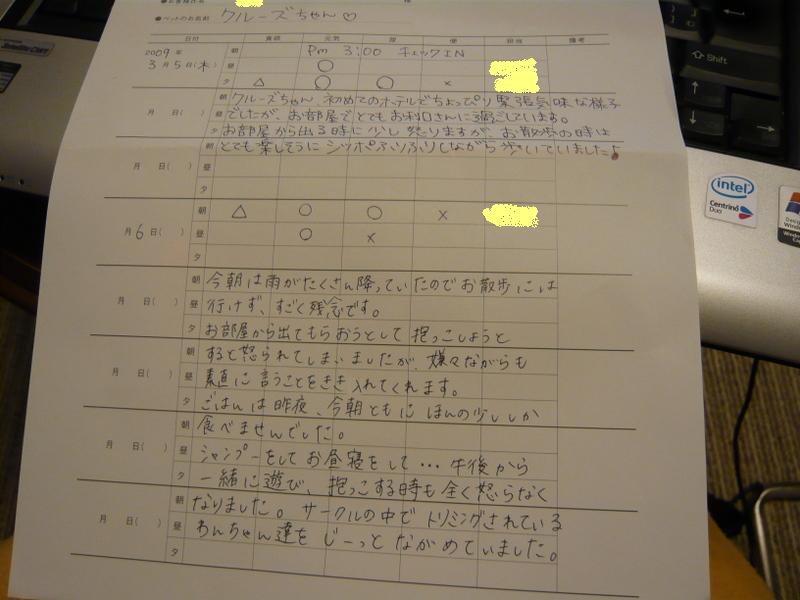 ●ペットのお名前 クルーズちゃん♡
日付 食欲 元気 尿 便 担当 備考
2009年 朝 Pm 3:00 チェックIN
3月5日(木) 昼 ○
夕 △ ○ ○ ×
朝 クルーズちゃん、初めてのホテルでちょっぴり緊張気味な様子
月 日( ) 昼 でしたが、お部屋でとてもお利口さんに過ごしています。
夕 お部屋から出る時に少し怒りますが、お散歩の時は
朝 とても楽しそうにシッポふりふりしながら歩いていましたよ
月 日( ) 昼
夕
朝 △ ○ ○ ×
月6日( ) 昼 ○ ×
夕
朝 今朝は雨がたくさん降っていたのでお散歩には
月 日( ) 昼 行けず、すごく残念です。
夕 お部屋から出てもらおうとして抱っこしようと
朝 すると怒られてしまいましたが、嫌々ながらも
月 日( ) 昼 素直に言うことをきき入れてくれます。
夕 ごはんは昨夜、今朝ともにほんの少ししか
朝 食べませんでした。
月 日( ) 昼 シャンプーをしてお昼寝をして…午後から
夕 一緒に遊び、抱っこする時も全く怒らなく
朝 なりました。サークルの中でトリミングされている
月 日( ) 昼 わんちゃん達をじーっとながめていました。
夕
Shift
intel
Centrino
Duo